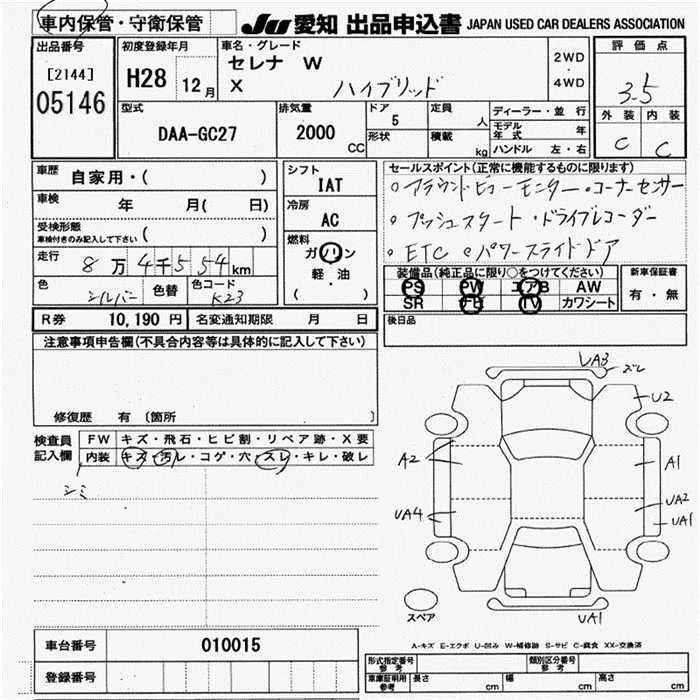 車内保管・守衛保管 JU 愛知 出品申込書 JAPAN USED CAR DEALERS ASSOCIATION
出品番号 [2144] 05146
初度登録年月 H28 12月
車名・グレード セレナ W X ハイブリッド
2WD・4WD
評価点 3.5
外装 内装
C C
型式 DAA-GC27
排気量 2000 CC
ドア 5 形状
定員 人
積載 kg
ディーラー・並行
モデル年式 年
ハンドル 左・右
車歴 自家用・( )
車検 年 月( 日)
受検形態 車検付きのみ記入して下さい ( )
走行 8万4千554km
色 シルバー 色替 色コード K23
シフト IAT
冷房 AC
燃料 ガソリン 軽・油 ( )
セールスポイント(正常に機能するものに限ります)
○アラウンドビューモニター・コーナーセンサー
○プッシュスタート・ドライブレコーダー
○ETC ○パワースライドドア
装備品(純正品に限り○をつけてください)
PS PW エアB AW
SR ナビ TV カワシート
新車保証書 有・無
後日品
R券 10,190 円 名変通知期限 月 日
注意事項申告欄(不具合内容等は具体的に記入して下さい)
修復歴 有 〔箇所 〕
検査員記入欄
FW キズ・飛石・ヒビ割・リペア跡・X要
内装 キズ・汚レ・コゲ・穴・スレ・キレ・破レ
シミ
UA3 ズレ
U2
A2 A1
UA4 UA2
UA1
スペア UA1
A-キズ E-エクボ U-凹み W-補修跡 S-サビ C-腐食 XX-交換済
車台番号 010015
登録番号
型式指定番号 参考 類別区分番号 参考
車庫証明用 参考 長さ cm 幅 cm 高さ cm